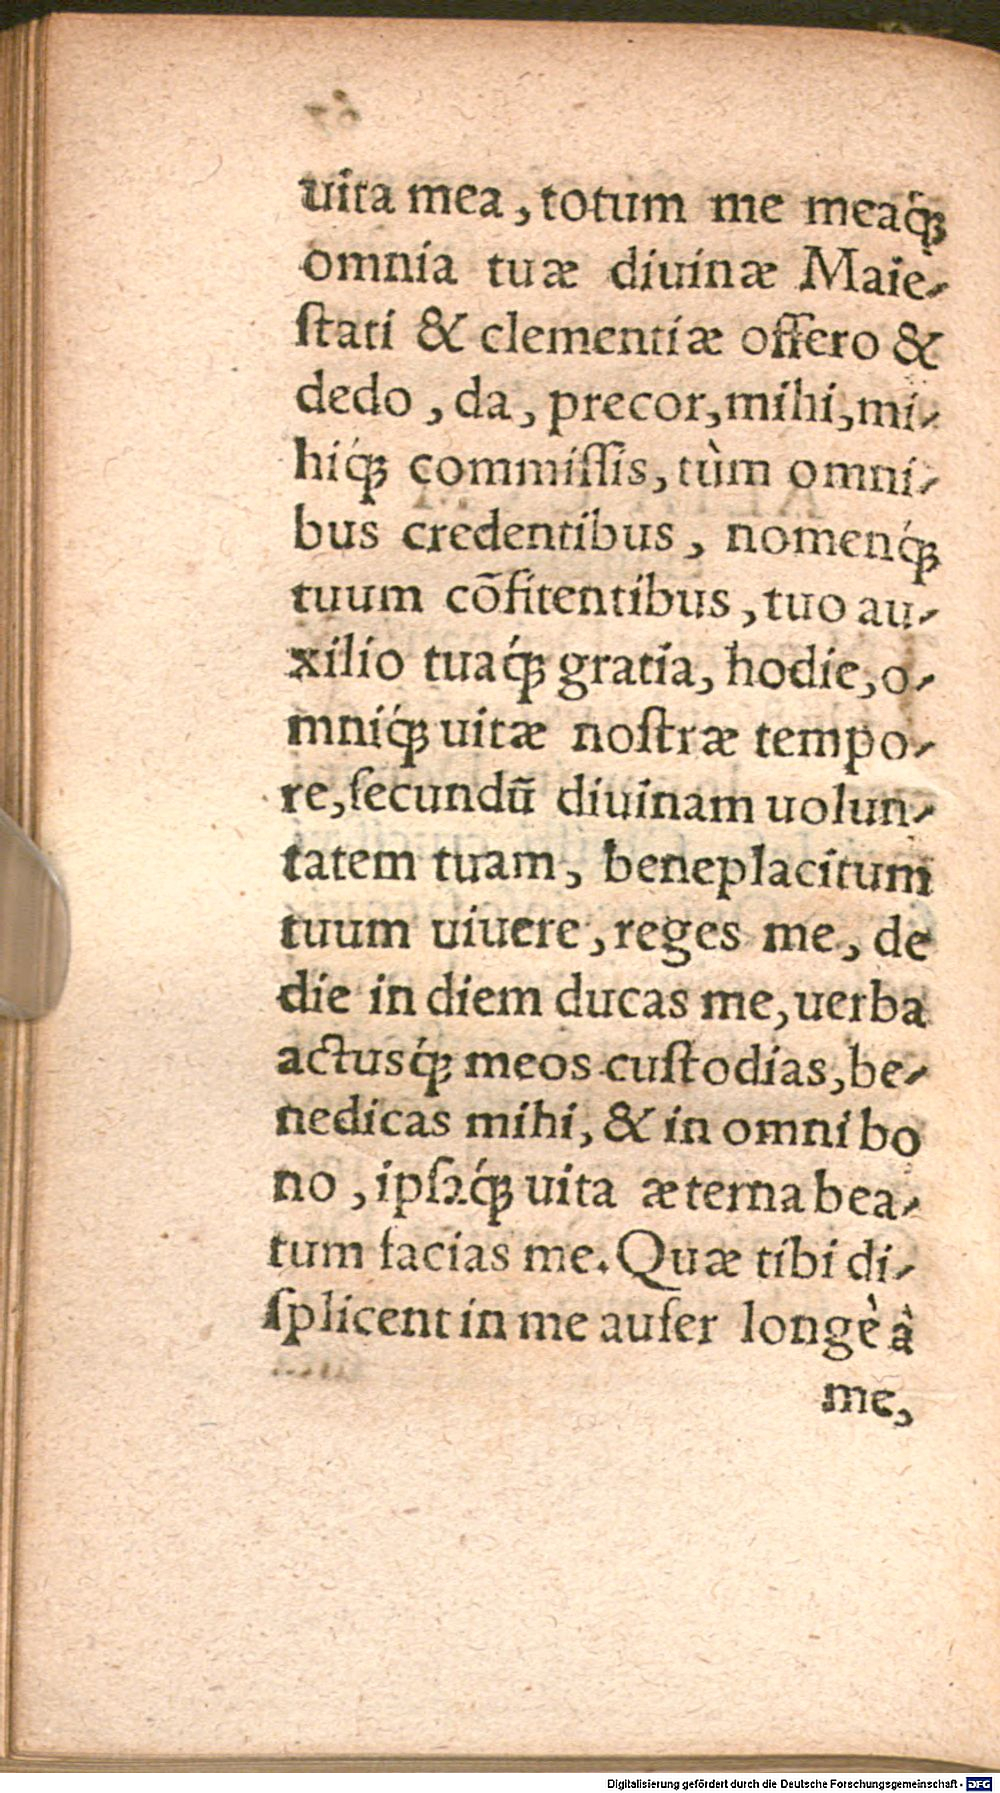 uita mea, totum me meaq́;
omnia tuæ diuinæ Maie-
ſtati & clementiæ offero &
dedo, da, precor, mihi, mi-
hiq́; commiſſis, tùm omni-
bus credentibus, nomenq́;
tuum cōfitentibus, tuo au-
xilio tuaq́; gratia, hodie, o-
mniq́; uitæ noſtræ tempo-
re, ſecundū diuinam uolun-
tatem tuam, beneplacitum
tuum uiuere, reges me, de
die in diem ducas me, uerba
actusq́; meos cuſtodias, be-
nedicas mihi, & in omni bo
no, ipſaq́; uita æterna bea-
tum facias me. Quæ tibi di-
ſplicent in me aufer longè à
me,
Digitalisierung gefördert durch die Deutsche Forschungsgemeinschaft - DFG